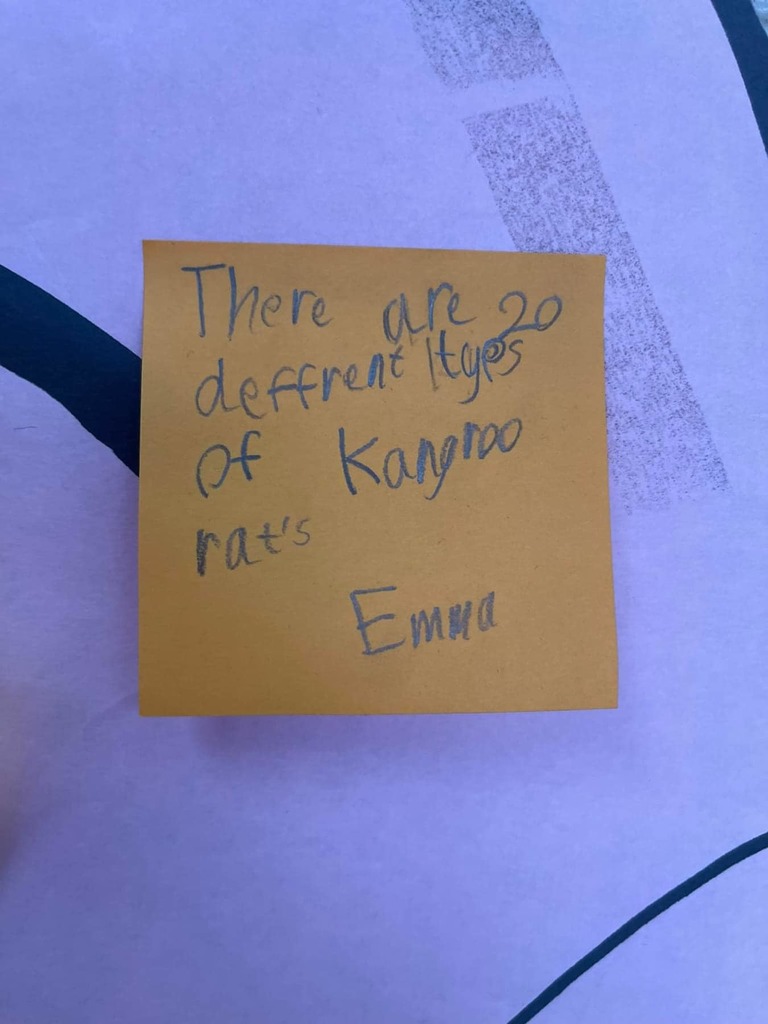 There are 20
deffrent types
of Kangroo
rat's
Emma